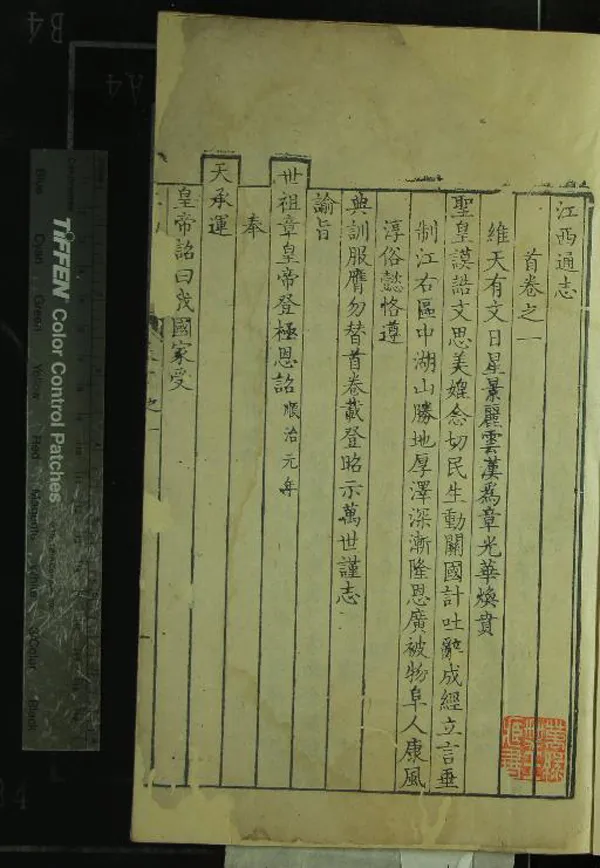 江西通志
首卷之一
維天有文日星景麗雲漢爲章光華煥賁
聖皇謨誥文思美媲念切民生動關國計吐辭成經立言垂
制江右區中湖山勝地厚澤深漸隆恩廣被物阜人康風
淳俗懿恪遵
典訓服膺勿替首卷載登昭示萬世謹志
諭旨
世祖章皇帝登極恩詔 順治元年
奉
天承運
皇帝詔曰我國家受
TIFFEN Color Control Patches
Blue Cyan Green Yellow Red Magenta White 3/Color Black
B4
A4